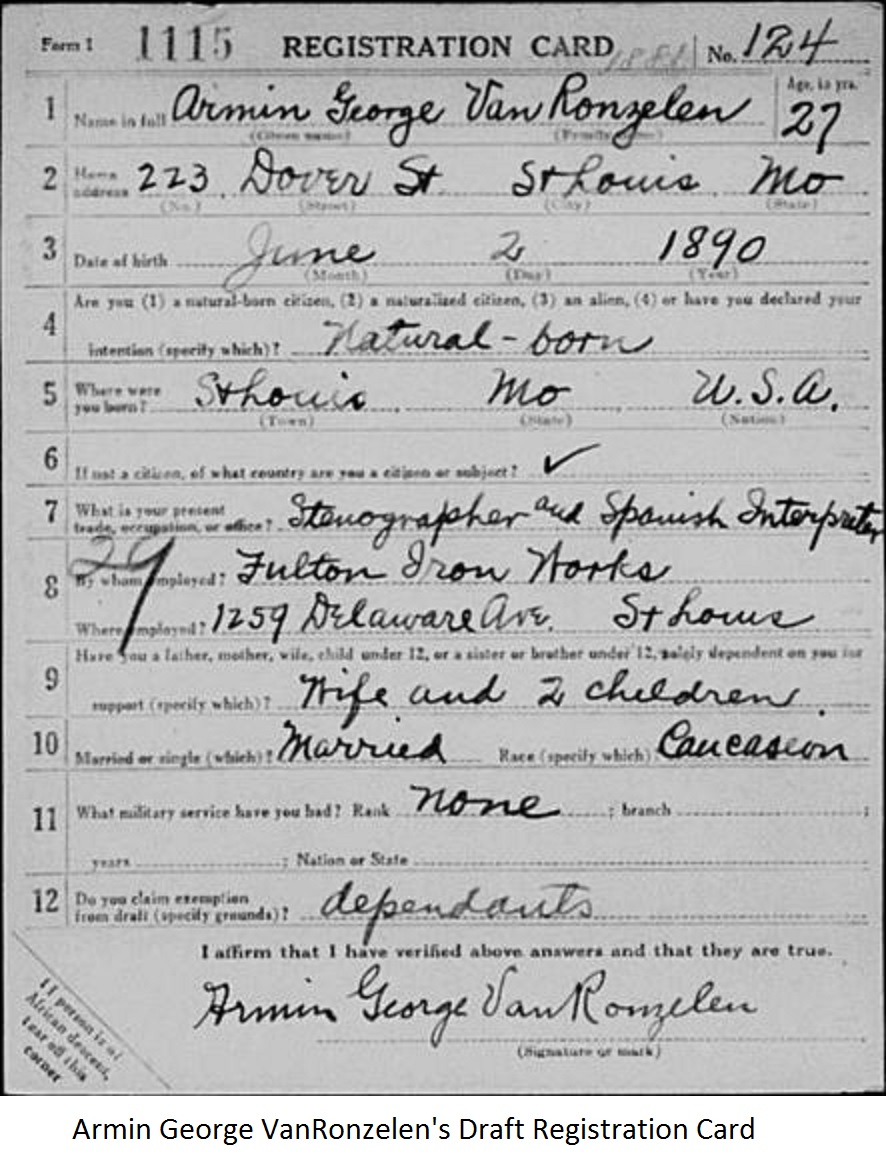 Form 1 1115 REGISTRATION CARD No. 124
1 Name in full Armin George Van Ronzelen Age, in yrs. 27
(Given name) (Family name)
2 Home address 223 Dover St St Louis Mo
(No.) (Street) (City) (State)
3 Date of birth June 2 1890
(Month) (Day) (Year)
4 Are you (1) a natural-born citizen, (2) a naturalized citizen, (3) an alien, (4) or have you declared your
intention (specify which)? Natural-born
5 Where were you born? St Louis Mo U.S.A.
(Town) (State) (Nation)
6 If not a citizen, of what country are you a citizen or subject? ✓
7 What is your present
trade, occupation, or office? Stenographer and Spanish Interpreter
29
8 By whom employed? Fulton Iron Works
Where employed? 1259 Delaware Ave. St Louis
9 Have you a father, mother, wife, child under 12, or a sister or brother under 12, solely dependent on you for
support (specify which)? Wife and 2 children
10 Married or single (which)? Married Race (specify which) Caucasion
11 What military service have you had? Rank none ; branch ;
years ; Nation or State
12 Do you claim exemption
from draft (specify grounds)? dependants
I affirm that I have verified above answers and that they are true.
Armin George Van Ronzelen
(Signature or mark)
If person is of
African descent,
tear off this
corner
Armin George VanRonzelen's Draft Registration Card